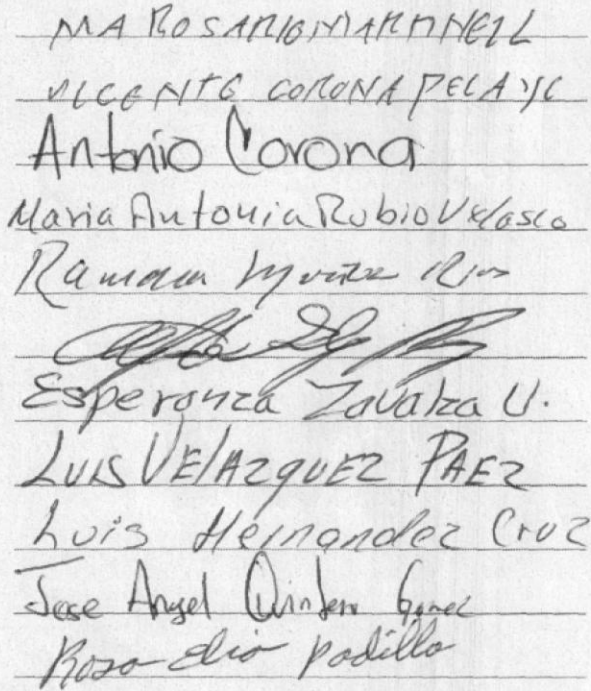 MA ROSARIO MARTINEZ
VICENTE CORONA PELAYO
Antonio Corona
Maria Antonia Rubio Velasco
Ramona Rios
Esperanza Zavalza U.
LUIS VELAZQUEZ PAEZ
Luis Hernandez Cruz
Jose Angel Quintero Gomez
Rosa Elia Padilla